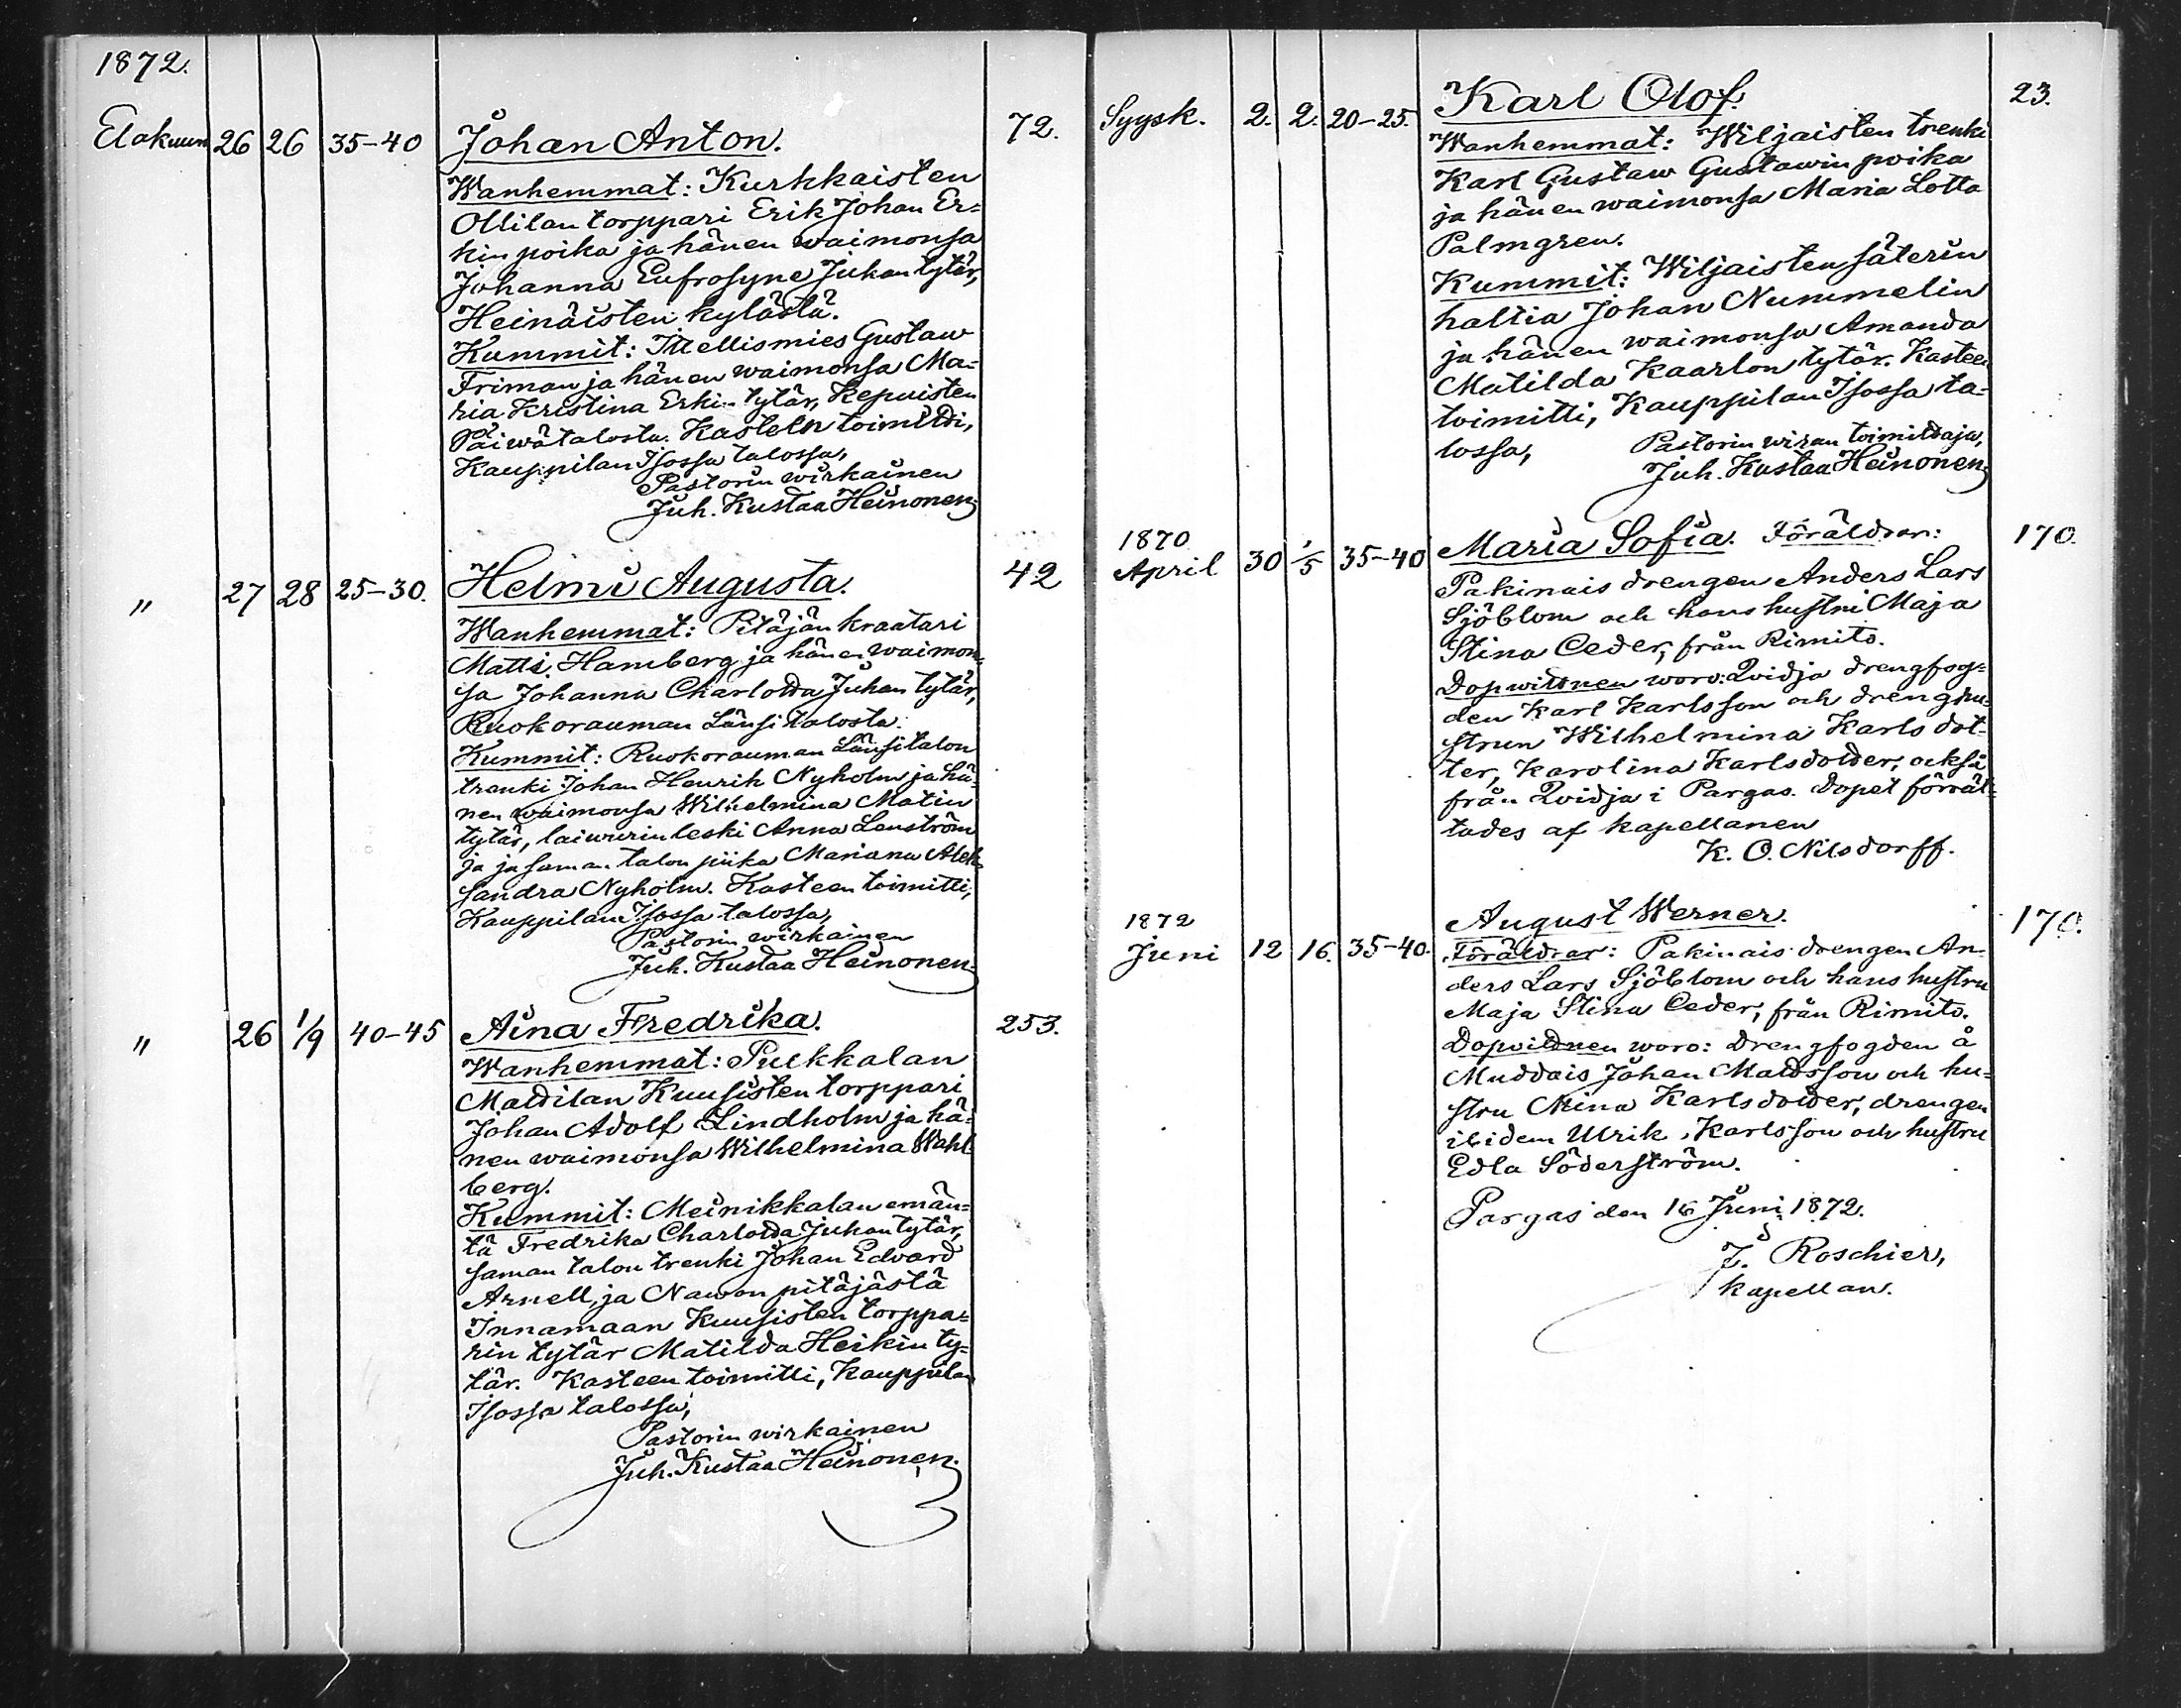 1872.
Elokuun 26 26 35-40 Johan Anton. 72.
Wanhemmat: Kurkkaisten
Ollilan torppari Erik Johan Er=
kin poika ja hänen waimonsa
Johanna Eufrosyne Juhan tytär,
Heinäisten kylästä.
Kummit: Itsellismies Gustaw
Friman ja hänen waimonsa Ma=
ria Kristina Erkin tytär, Kepuisten
Päiwätalosta. Kasteen toimitti,
Kauppilan Isossa talossa,
Pastorin wirkainen
Juh. Kustaa Heinonen
" 27 28 25-30. Helmi Augusta. 42
Wanhemmat: Pitäjän kraatari
Matts Hamberg ja hänen waimon=
sa Johanna Charlotta Juhan tytär,
Ruokorauman Länsitalosta.
Kummit: Ruokorauman Länsitalon
trenki Johan Henrik Nyholm ja hä=
nen waimonsa Wilhelmina Matin
tytär, laiwurin leski Anna Lenström
ja ja saman talon piika Mariana Alek=
sandra Nyholm. Kasteen toimitti,
Kauppilan Isossa talossa,
Pastorin wirkainen
Juh. Kustaa Heinonen.
" 26 1/9 40-45 Aina Fredrika. 253.
Wanhemmat: Pukkalan
Mattilan Kuusisten torppari
Johan Adolf Lindholm ja hä=
nen waimonsa Wilhelmina Wahl
berg.
Kummit: Meinikkalan emän=
tä Fredrika Charlotta Juhan tytär,
saman talon trenki Johan Edvard
Arnell, ja Nauwon pitäjästä
Innamaan Kuusisten torppa=
rin tytär Matilda Heikin ty=
tär. Kasteen toimitti, Kauppilan
Isossa talossa,
Pastorin wirkainen
Juh. Kustaa Heinonen.
Syysk. 2. 2. 20-25. Karl Olof. 23.
Wanhemmat: Wiljaisten trenki
Karl Gustaw Gustawin poika
ja hänen waimonsa Maria Lotta
Palmgren.
Kummit: Wiljaisten säterin
haltia Johan Nummelin
ja hänen waimonsa Amanda
Matilda Kaarlon tytär. Kasteen
toimitti, Kauppilan Isossa ta=
lossa, Pastorin wiran toimittaja,
Juh. Kustaa Heinonen
1870
April 30 1/5 35-40 Maria Sofia. Föräldrar: 170.
Pakinais drengen Anders Lars
Sjöblom och hans hustru Maja
Stina Ceder, från Rimito.
Dopwittnen woro: Qvidja drengfog=
den Karl Karlsson och drenghu=
strun Wilhelmina Karlsdot=
ter, Karolina Karlsdotter, också
från Qvidja i Pargas. Dopet förrät=
tades af kapellanen
K. O. Nilsdorff.
1872
Juni 12 16. 35-40. August Werner. 170.
Föräldrar: Pakinais drengen An=
ders Lars Sjöblom och hans hustru
Maja Stina Ceder, från Rimito.
Dopvittnen woro: Drengfogden å
Muddais Johan Mattsson och hu=
stru Mina Karlsdotter, drengen
ibidem Ulrik Karlsson och hustru
Edla Söderström.
Pargas den 16 Juni 1872.
J. Roschier,
kapellan.